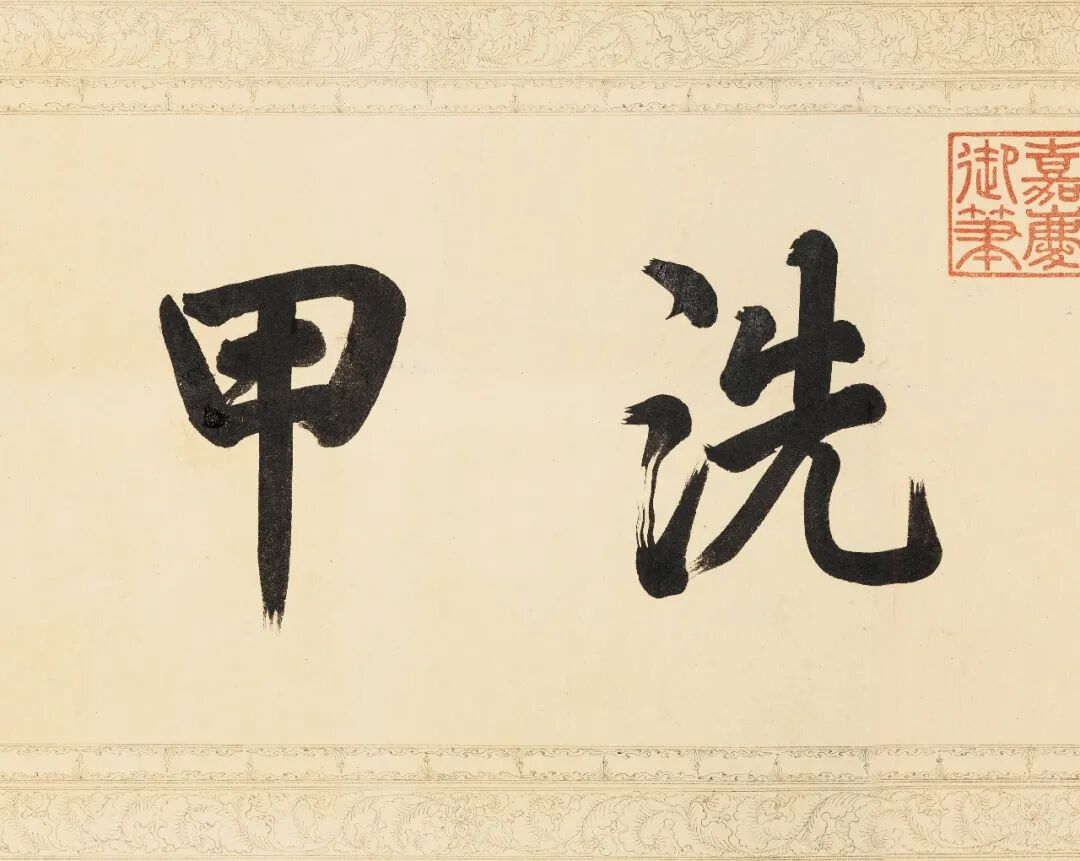 洗甲
嘉慶
御筆